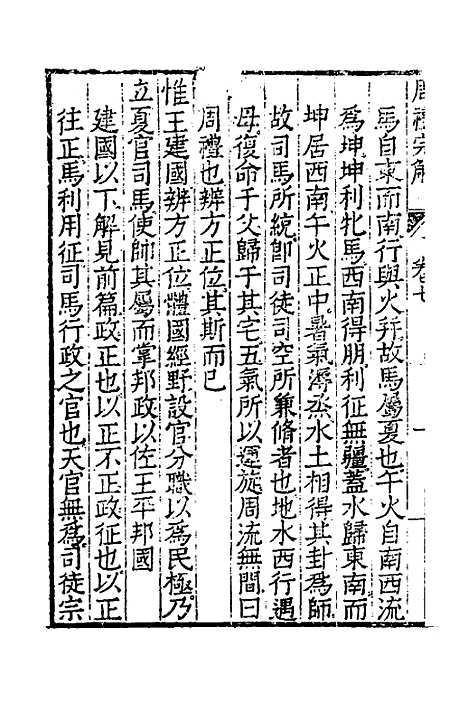 周禮完解 卷七
馬自東而南行與火幷故馬屬夏也午火自南西流
爲坤坤利牝馬西南得朋利征無疆蓋水歸東南而
坤居西南午火正中暑氣溽烝水土相得其卦爲師
故司馬所統卽司徒司空所兼脩者也地水西行遇
母復命于父歸于其宅五氣所以運旋周流無間曰
周禮也辨方正位其斯而已
惟王建國辨方正位體國經野設官分職以爲民極乃
立夏官司馬使帥其屬而掌邦政以佐王平邦國
建國以下解見前篇政正也以正不正政征也以正
往正馬利用征司馬行政之官也天官無爲司徒宗